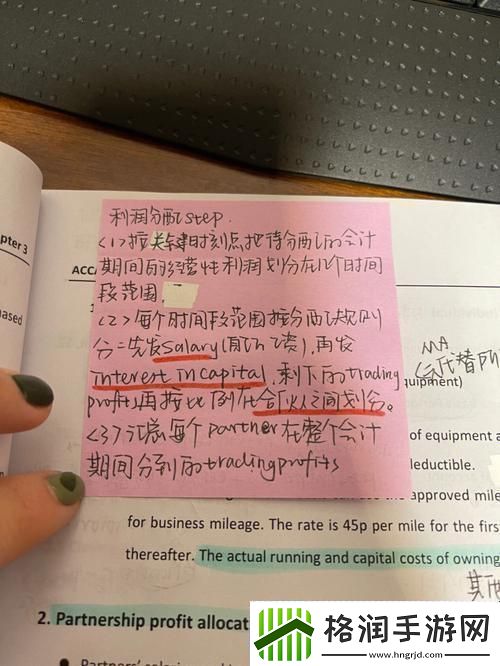 利润分配 step.
<1> 按关键时刻点,把待分配的会计
期间的经营性利润划分在几个时间
段范围.
<2> 每个时间段范围按分配规则
分:先发salary(前几次),再发
interest in capital, 剩下的trading
profit,再按比例在合伙人之间划分。
<3> 汇总每个partner在整个会计
期间分到的trading profits
pter 3
ased
ACCA
MA
quipment)
of equipment a
deductible.
approved mile
for business mileage. The rate is 45p per mile for the first
thereafter. The actual running and capital costs of owning
2. Partnership profit allocat
格润手游网
www.hngrjd.com